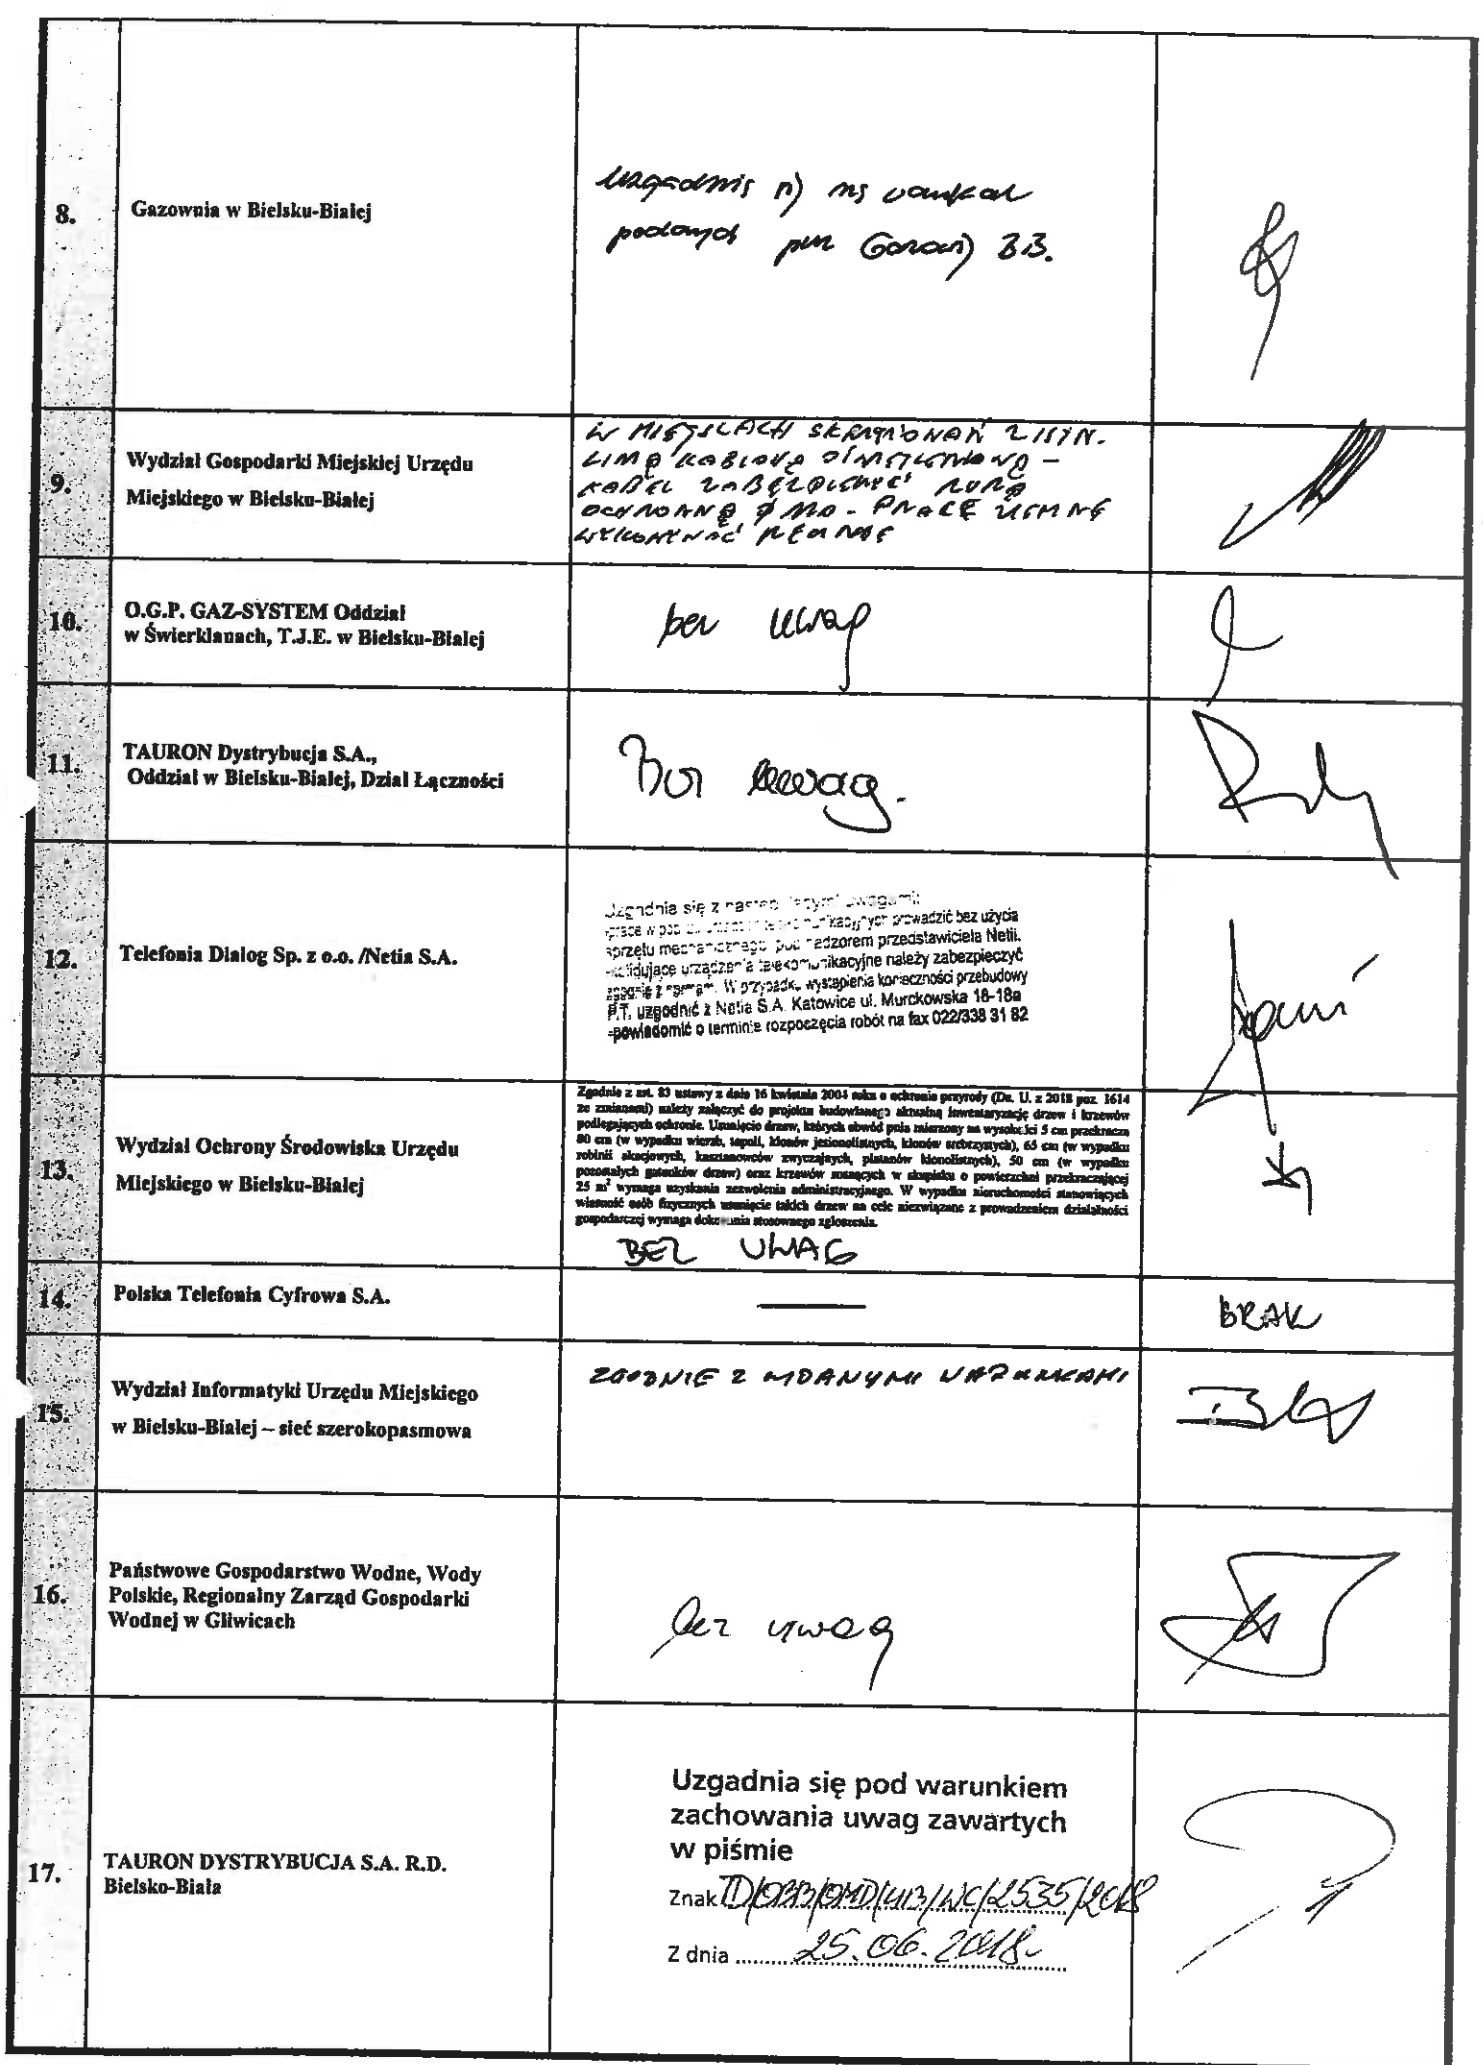 8.
Gazownia w Bielsku-Białej
podanych Gazown) BB.
9.
Wydział Gospodarki Miejskiej Urzędu
Miejskiego w Bielsku-Białej
W MIEJSCACH SKRZYŻOWAŃ Z ISTN.
LINIĄ KABLOWĄ OŚWIETLENIOWĄ -
KABEL ZABEZPIECZYĆ RURĄ
OCHRONNĄ Ø 110 - PRACE ZIEMNE
WYKONYWAĆ RĘCZNIE
10.
O.G.P. GAZ-SYSTEM Oddział
w Świerklanach, T.J.E. w Bielsku-Białej
bez uwag
11.
TAURON Dystrybucja S.A.,
Oddział w Bielsku-Białej, Dział Łączności
Bez uwag.
12.
Telefonia Dialog Sp. z o.o. /Netia S.A.
Uzgadnia się z następującymi uwagami:
-prace w prowadzić bez użycia
sprzętu mechanicznego, pod nadzorem przedstawiciela Netii.
-kolidujące urządzenia telekomunikacyjne należy zabezpieczyć
zgodnie z normami. W przypadku wystąpienia konieczności przebudowy
P.T. uzgodnić z Netia S.A. Katowice ul. Murckowska 18-18a
-powiadomić o terminie rozpoczęcia robót na fax 022/338 31 82
13.
Wydział Ochrony Środowiska Urzędu
Miejskiego w Bielsku-Białej
Zgodnie z art. 83 ustawy z dnia 16 kwietnia 2004 roku o ochronie przyrody (Dz. U. z 2018 poz. 1614
ze zmianami) należy załączyć do projektu budowlanego aktualną inwentaryzację drzew i krzewów
podlegających ochronie. Usunięcie drzew, których obwód pnia mierzony na wysokości 5 cm przekracza
80 cm (w wypadku wierzb, topoli, klonów jesionolistnych, klonów srebrzystych), 65 cm (w wypadku
robinii akacjowych, kasztanowców zwyczajnych, platanów klonolistnych), 50 cm (w wypadku
pozostałych gatunków drzew) oraz krzewów rosnących w skupisku o powierzchni przekraczającej
25 m² wymaga uzyskania zezwolenia administracyjnego. W wypadku nieruchomości stanowiących
własność osób fizycznych usunięcie takich drzew na cele niezwiązane z prowadzeniem działalności
gospodarczej wymaga dokonania stosownego zgłoszenia.
BEZ UWAG
14.
Polska Telefonia Cyfrowa S.A.
BRAK
15.
Wydział Informatyki Urzędu Miejskiego
w Bielsku-Białej – sieć szerokopasmowa
ZGODNIE Z WYDANYMI WARUNKAMI
16.
Państwowe Gospodarstwo Wodne, Wody
Polskie, Regionalny Zarząd Gospodarki
Wodnej w Gliwicach
bez uwag
17.
TAURON DYSTRYBUCJA S.A. R.D.
Bielsko-Biała
Uzgadnia się pod warunkiem
zachowania uwag zawartych
w piśmie
Znak TD/OBB/OMD/UB/WC/2535/2018
Z dnia 25.06.2018r